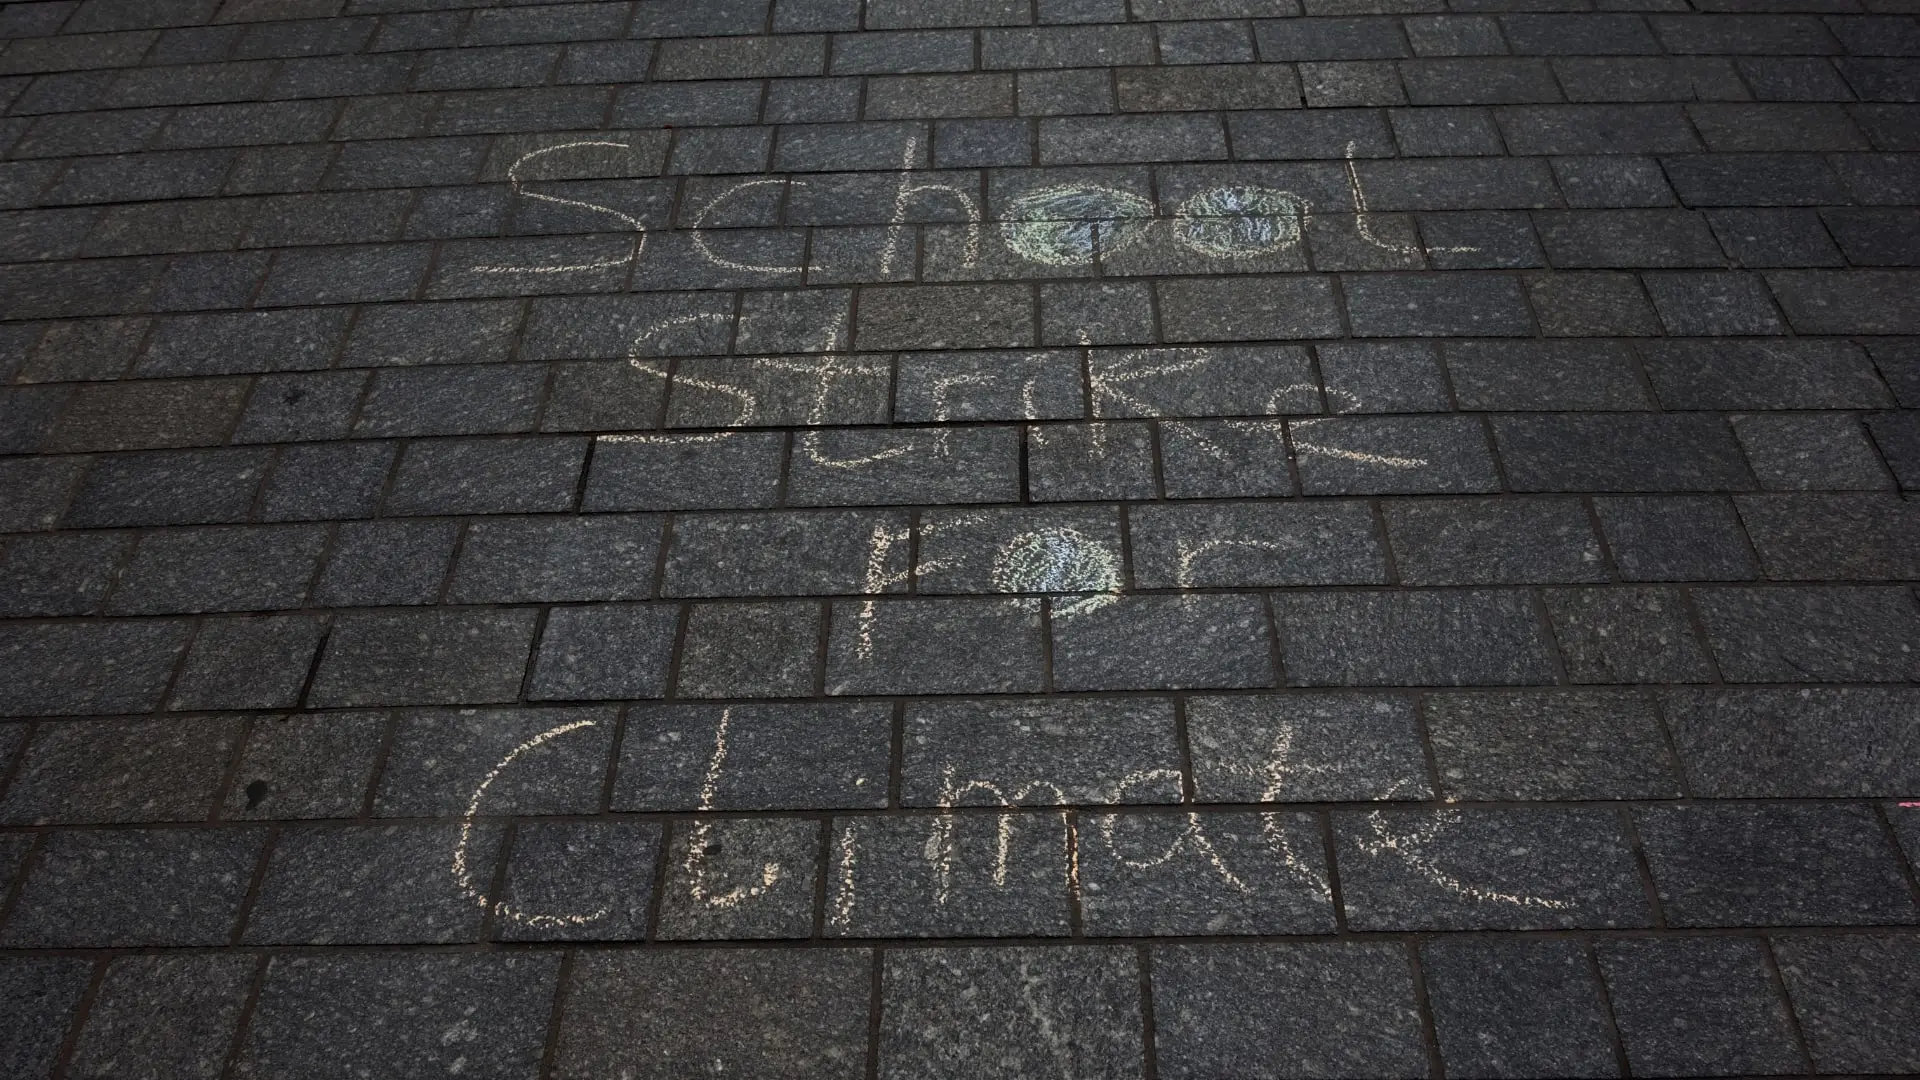 School
Strike
For
Climate